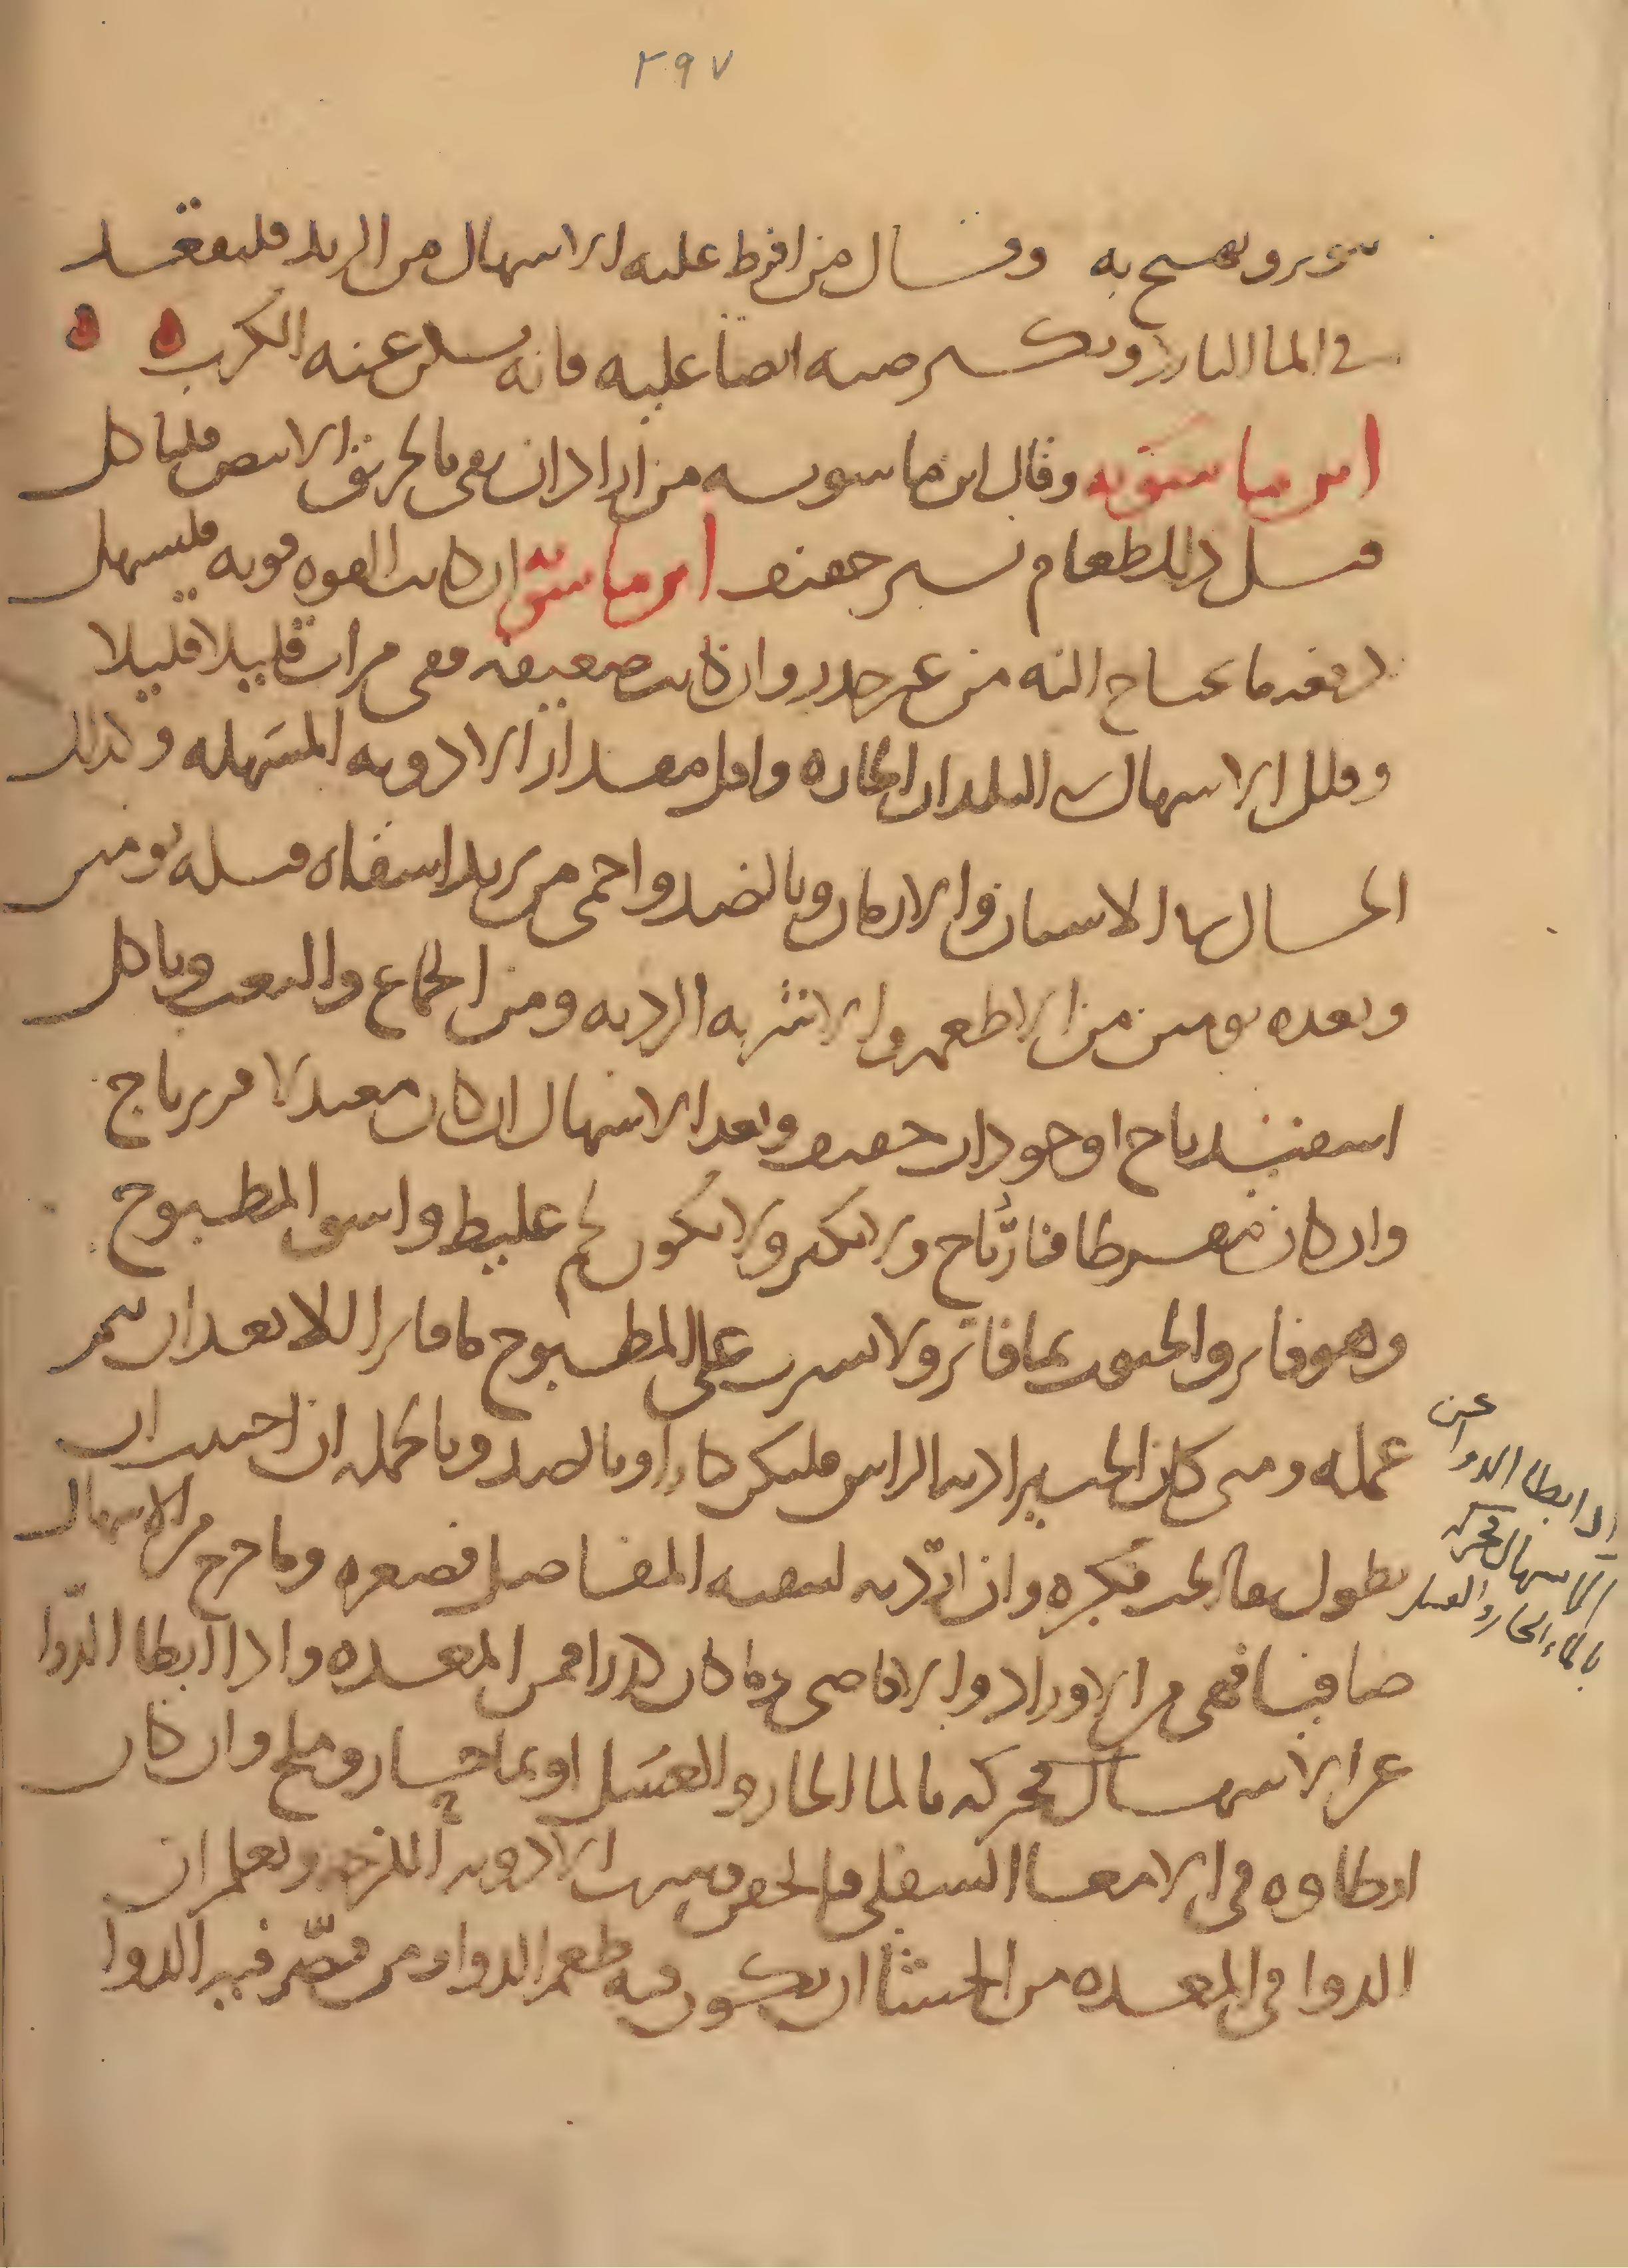 ٢٩٧
سوير ويهيج به وقال من افرط عليه الاسهال من اليد فليقعد
في الما البارد ويكسر صبه ايضا عليه فانه يسكن عنه الكرب ه ه
ابن ماسويه وقال ابن ماسويه من اراد ان يقي بالخربق الابيض فلياكل
قبل ذلك طعام يسير خفيف ابن ماسويه ان كانت القوه قويه فليسهل
دفعه ما يحتاج اليه من غير حذر وان كانت ضعيفه ففي مرات قليلا قليلا
وقلل الاسهال في البلدان الحاره واقل مقدار الادويه المسهله وكذلك
الحال في الاسنان والازمان وبالضد واحمي من يريد اسقاه قبله يومين
وبعده يومين من الاطعمه والاشربه الرديه ومن الجماع والتعب وياكل
اسفيدباج او جوذاب خفيف وبعد الاسهال ان كان معتدلا فزيرباج
وان كان مفرطا فنارباج ولا يكثر ولا يكون لحم غليظ واسق المطبوخ
وهو فاتر والحبوب بما فاتر ولا يشرب على المطبوخ ما فاترا الا بعد ان يتم
عمله ومتى كان الحب يراد به الراس فليكن كبارا وبالضد وبالجمله ان احببت ان
يطول بقا الحب فكبره وان اردت لتنقيه المفاصل فصغره وما خرج من الاسهال
صافيا فهي من الاوراد والاقاصي وما كان كدرا فمن المعده واذا ابطا الدوا
عن الاسهال فحركه بالما الحار والعسل او بما حار وملح وان كان
ابطاوه في الامعا السفلى فالحقن وشرب الادويه اللزجه وتعلم ان
الدوا في المعده من الجشا ان يكون فيه طعم الدوا ومن قصر فيه الدوا
عن
اذا ابطا الدوا
الاسهال فحركه
بالماء الحار والعسل